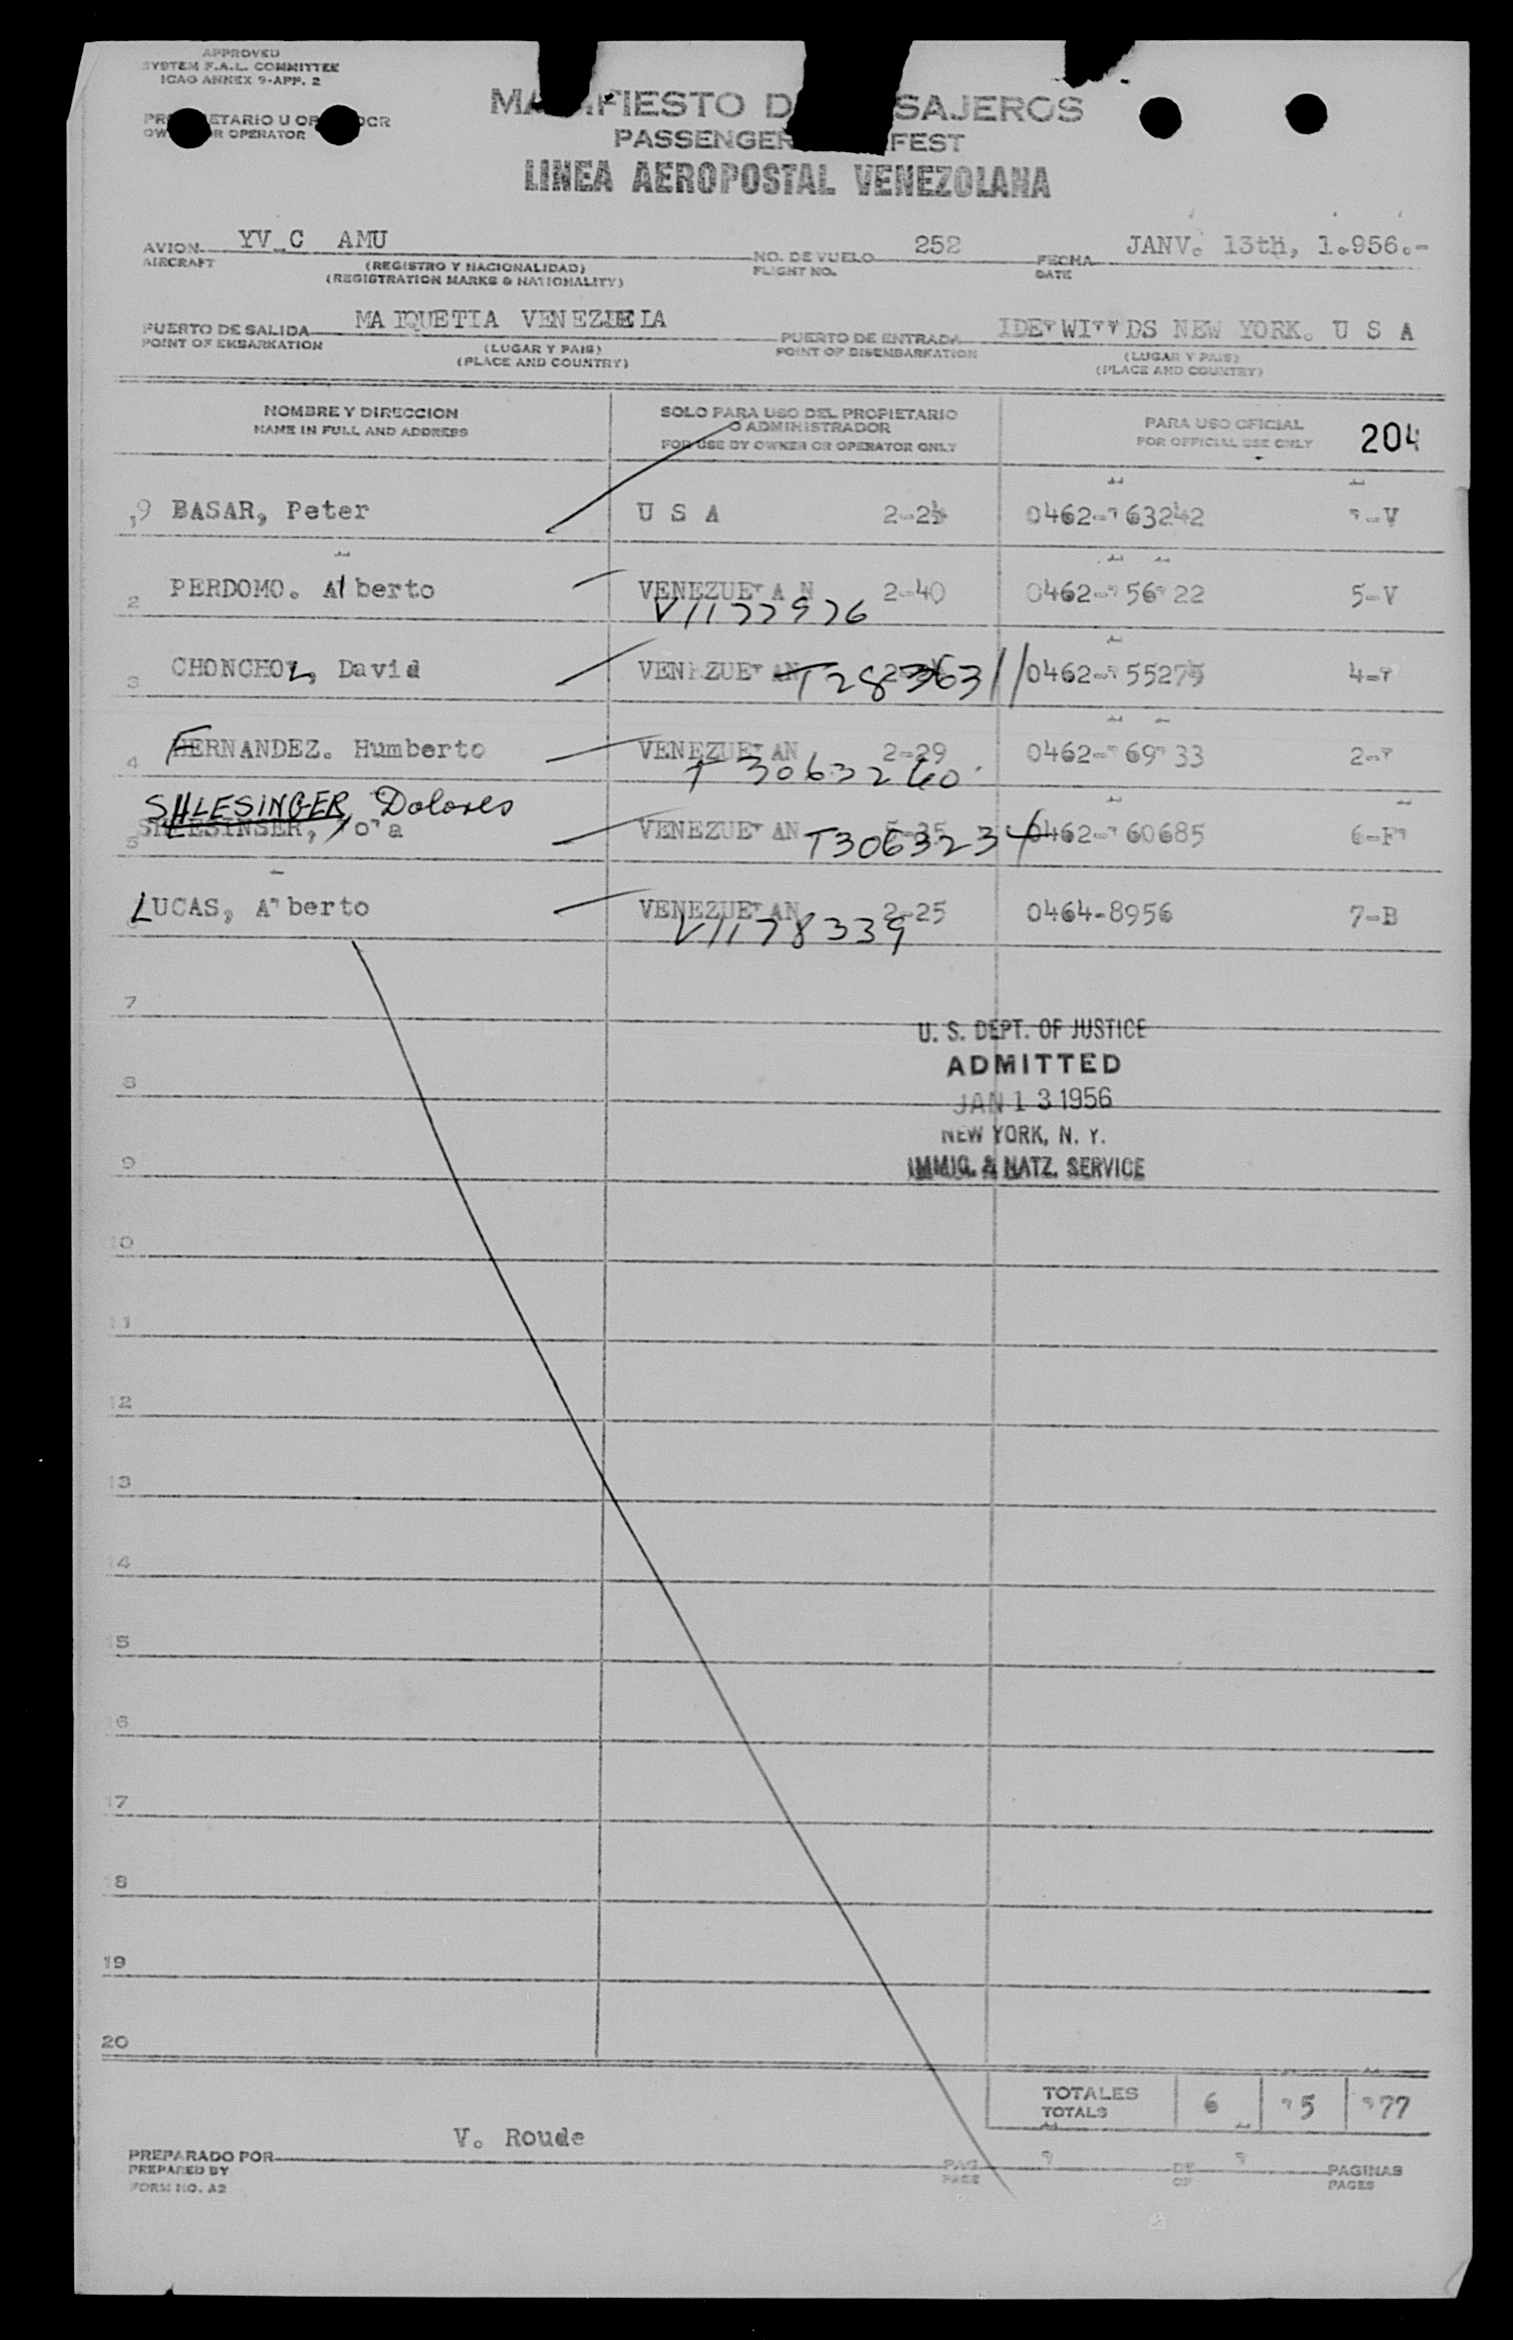 APPROVED
SYSTEM F.A.L. COMMITTEE
ICAO ANNEX 9-APP. 2
MANIFIESTO DE PASAJEROS
PASSENGER MANIFEST
LINEA AEROPOSTAL VENEZOLANA
AVION YV C AMU NO. DE VUELO 252 FECHA JANV. 13th, 1.956.-
AIRCRAFT (REGISTRO Y NACIONALIDAD) FLIGHT NO. DATE
(REGISTRATION MARKS & NATIONALITY)
PUERTO DE SALIDA MAIQUETIA VENEZUELA PUERTO DE ENTRADA NEW YORK. U S A
POINT OF EMBARKATION (LUGAR Y PAIS) POINT OF DISEMBARKATION (LUGAR Y PAIS)
(PLACE AND COUNTRY) (PLACE AND COUNTRY)
NOMBRE Y DIRECCION SOLO PARA USO DEL PROPIETARIO PARA USO OFICIAL 204
NAME IN FULL AND ADDRESS O ADMINISTRADOR FOR OFFICIAL USE ONLY
FOR USE BY OWNER OR OPERATOR ONLY
BASAR, Peter U S A 0462- 63242
2 PERDOMO. Alberto VENEZUELAN 2-40 0462- 5-V
V1177976
3 CHONCHOL, David VENEZUELAN T2836311 0462- 55275
4 FERNANDEZ. Humberto VENEZUELAN 2-29 0462-
T3063260
SHLESINGER, Dolores
5 VENEZUELAN T3063234 0462- 60685
LUCAS, Alberto VENEZUELAN 2-25 0464-8956 7-B
V1178339
7
U. S. DEPT. OF JUSTICE
ADMITTED
8
JAN 13 1956
NEW YORK, N. Y.
9 IMMIG. & NATZ. SERVICE
10
11
12
13
14
15
16
17
18
19
20
TOTALES 6
TOTALS
V. Roude
PREPARADO POR PAG DE PAGINAS
PREPARED BY PAGE OF PAGES
FORM NO. A2